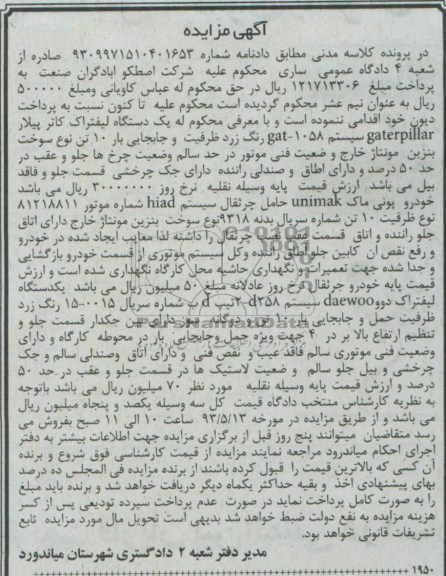 آگهی مزایده
در پرونده کلاسه مدنی مطابق دادنامه شماره ۹۳۰۹۹۷۱۵۱۰۴۰۱۶۵۳ صادره از
شعبه ۴ دادگاه عمومی ساری محکوم علیه شرکت اصطکو ابادگران صنعت به
پرداخت مبلغ ۱۲۱۷۱۳۳۰۶ ریال در حق محکوم له عباس کاویانی ومبلغ ۵۰۰۰۰۰
ریال به عنوان نیم عشر محکوم گردیده است محکوم علیه تا کنون نسبت به پرداخت
دیون خود اقدامی ننموده است و با معرفی محکوم له یک دستگاه لیفتراک کاتر پیلار
gaterpillar سیستم gat-۱۰۵۸ رنگ زرد ظرفیت و جابجایی بار ۱۰ تن نوع سوخت
بنزین مونتاژ خارج و ضعیت فنی موتور در حد سالم وضعیت چرخ ها جلو و عقب در
حد ۵۰ درصد و دارای اطاق و صندلی راننده دارای جک چرخشی قسمت جلو و فاقد
بیل می باشد ارزش قیمت پایه وسیله نقلیه نرخ روز ۳۰۰۰۰۰۰۰ ریال می باشد
خودرو یونی ماک unimak حامل جرثقال سیستم hiad شماره موتور ۸۱۲۱۸۸۱۱
نوع ظرفیت ۱۰ تن شماره سریال بدنه ۹۳۱۸نوع سوخت بنزین مونتاژ خارج دارای اتاق
جلو راننده و اتاق قسمت عقب و جرثقال را داشته لذا معایب ایجاد شده در خودرو
و رفع نقص ان کابین جلو اتاق راننده وکل سیستم موتوری از قسمت خودرو بازگشایی
و جدا شده جهت تعمیرات و نگهداری حاشیه محل کارگاه نگهداری شده است و ارزش
قیمت پایه خودرو جرثقال نرخ روز عادلانه مبلغ ۵۰ میلیون ریال می باشد یکدستگاه
لیفتراک دوو daewoo سیستم d۲۵۸-۲تیپ d ب شماره سریال ۰۰۱۵-۱۵ رنگ زرد
ظرفیت حمل و جابجایی بار ۱۰ تن دوگانه دارای چکدار قسمت جلو و
تنظیم ارتفاع بالا بر در ۴ جهت ویژه حمل وجابجایی بار در محوطه کارگاه و دارای
وضعیت فنی موتوری سالم فاقد عیب و نقص فنی و دارای اتاق وصندلی سالم و جک
چرخشی و بیل جلو سالم و ضعیت لاستیک ها در قسمت جلو و عقب در حد ۵۰
درصد و ارزش قیمت پایه وسیله نقلیه مورد نظر ۷۰ میلیون ریال می باشد باتوجه
به نظریه کارشناس منتخب دادگاه قیمت کل سه وسیله یکصد و پنجاه میلیون ریال
می باشد و از طریق مزایده در مورخه ۹۳/۵/۱۳ ساعت ۱۰ الی ۱۱ صبح بفروش می
رسد متقاضیان میتوانند پنج روز قبل از برگزاری مزایده جهت اطلاعات بیشتر به دفتر
اجرای احکام میاندرود مراجعه نمایند مزایده از قیمت کارشناسی فوق شروع و برنده
آن کسی که بالاترین قیمت را قبول کرده باشند از برنده مزایده فی المجلس ده درصد
بهای پیشنهادی اخذ و بقیه حداکثر یکماه دیگر دریافت خواهد شد و برنده باید مبلغ
را به صورت کامل پرداخت نماید در صورت عدم پرداخت سپرده تودیعی پس از کسر
هزینه مزایده به نفع دولت ضبط خواهد شد بدیهی است تحویل مال مورد مزایده تابع
تشریفات قانونی خواهد بود.
مدیر دفتر شعبه ۲ دادگستری شهرستان میاندورد
۱۹۵۰